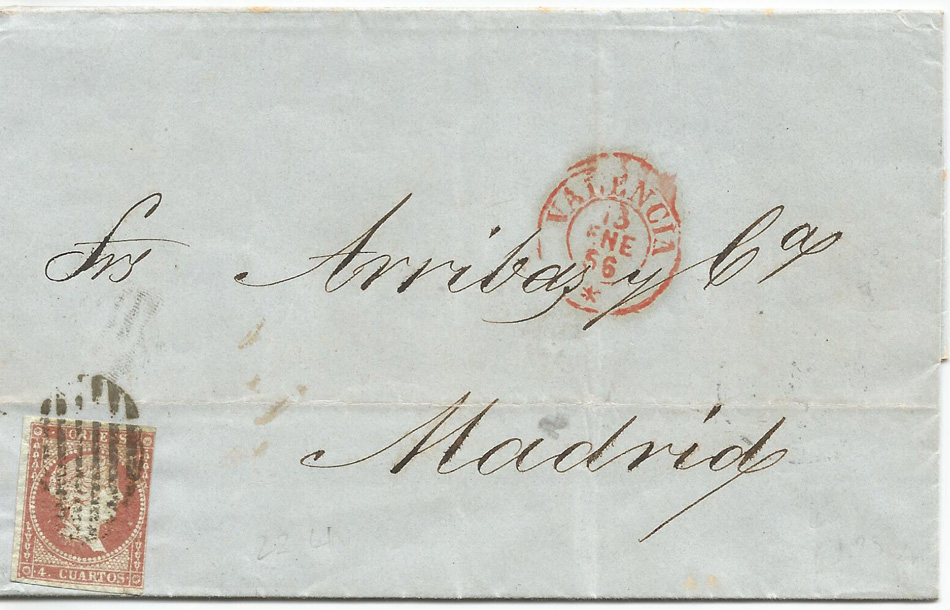 VALENCIA
13
ENE
56
Frs Arribas y Cª
Madrid
CORREOS
4. CUARTOS